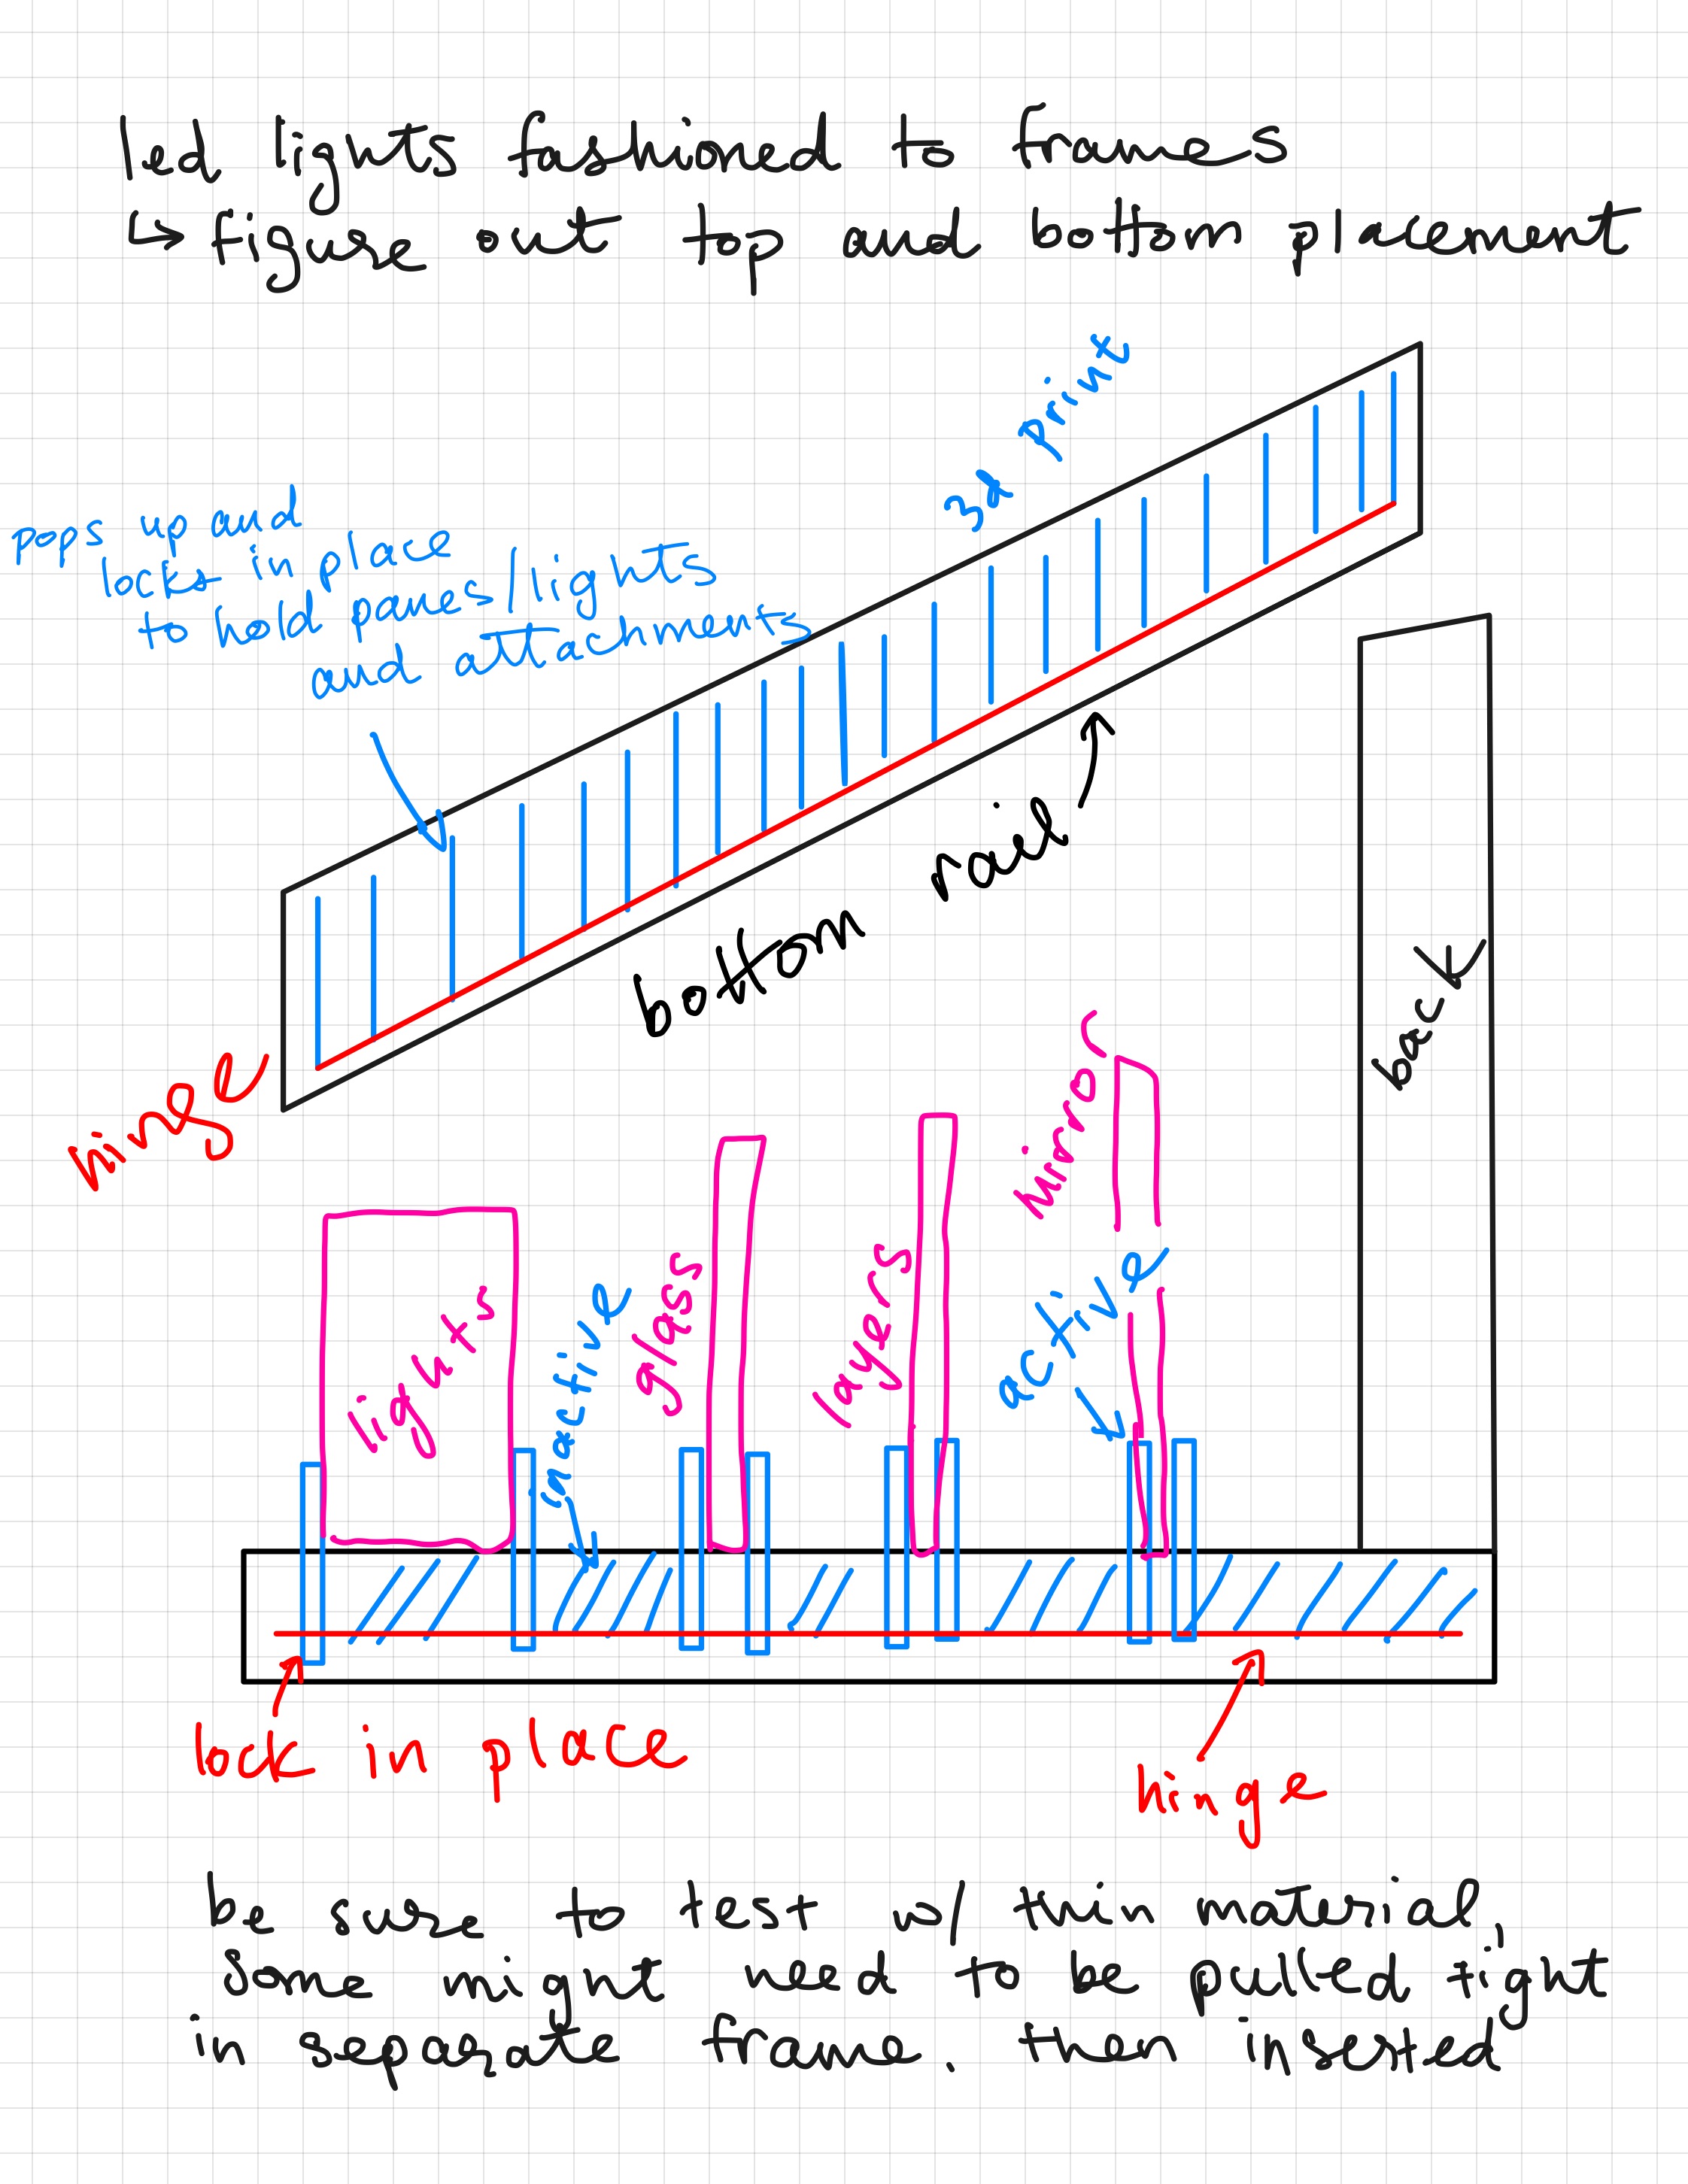 led lights fashioned to frames
↳ figure out top and bottom placement
3d print
pops up and
locks in place
to hold panes/lights
and attachments
bottom rail
hinge
back
mirror
lights
inactive
glass
layers
active
lock in place
hinge
be sure to test w/ thin material,
some might need to be pulled tight
in separate frame. then inserted